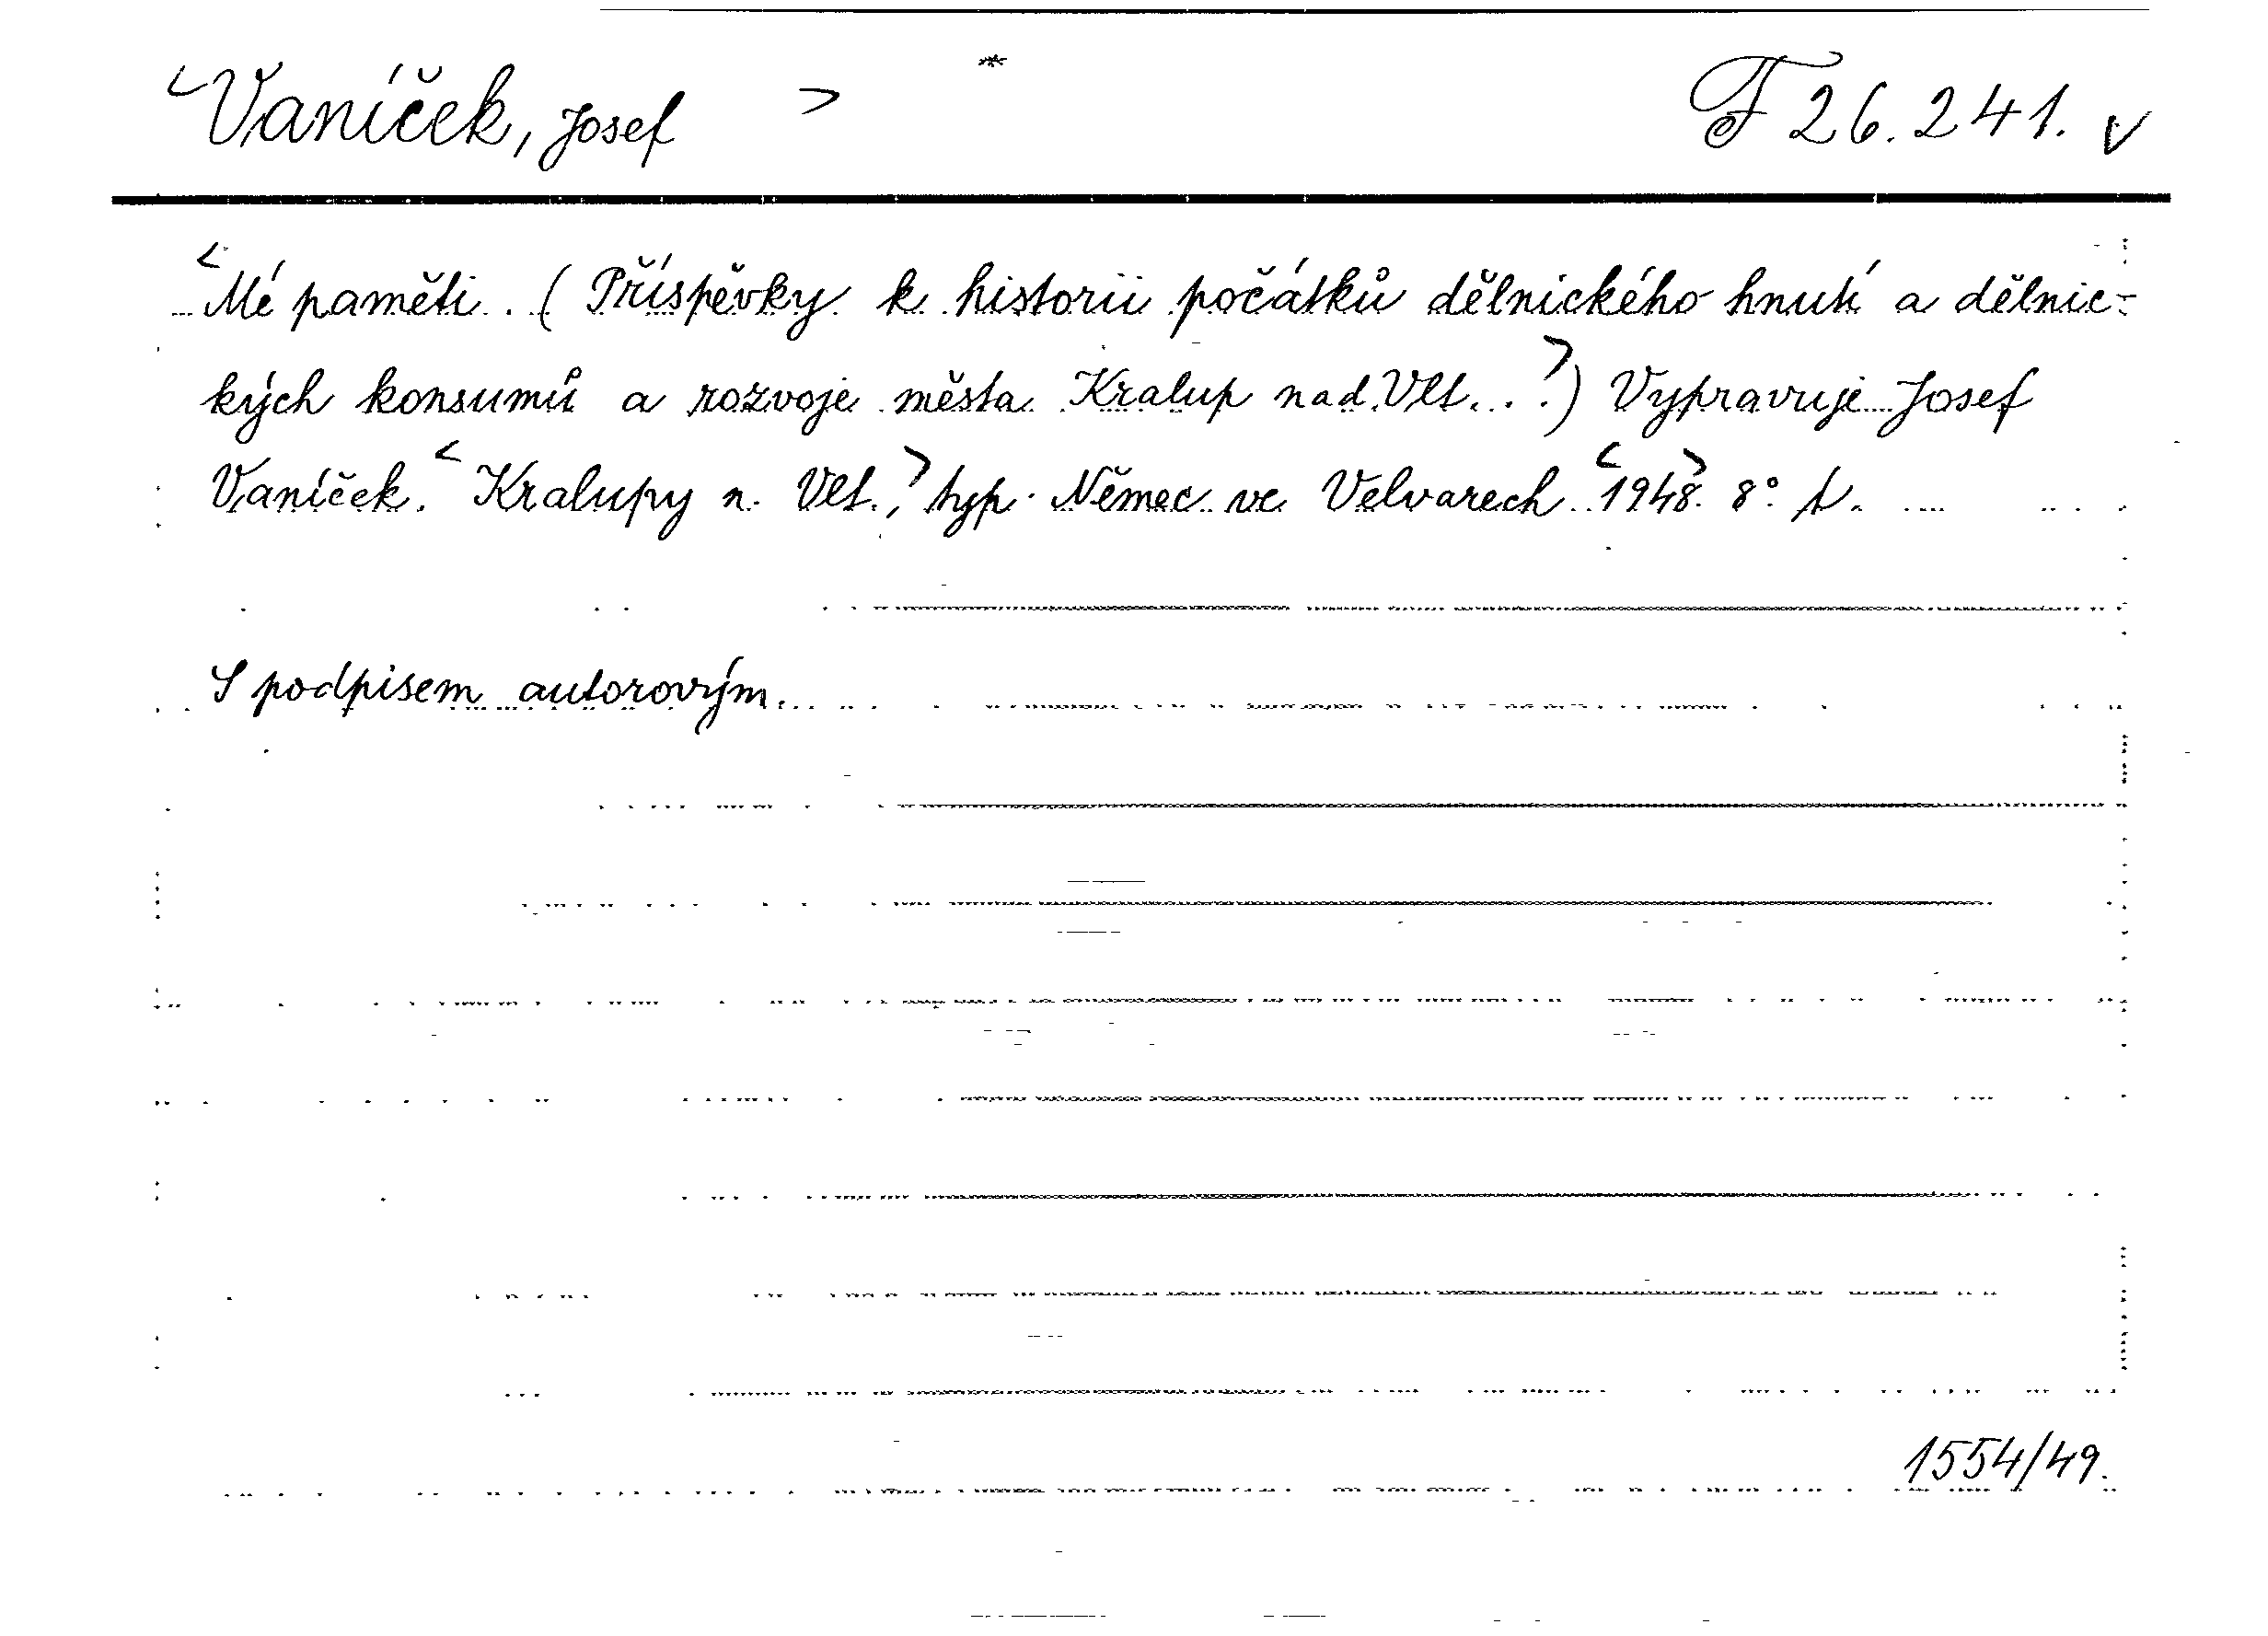 <Vaníček, Josef > * F 26.241. v
<Mé paměti. (Příspěvky k historii počátků dělnického hnutí a dělnic-
kých konsumů a rozvoje města Kralup nad Vlt...>) Vypravuje Josef
Vaníček. <Kralupy n. Vlt.,> typ. Němec ve Velvarech <1948>. 8°.
S podpisem autorovým.
1554/49.